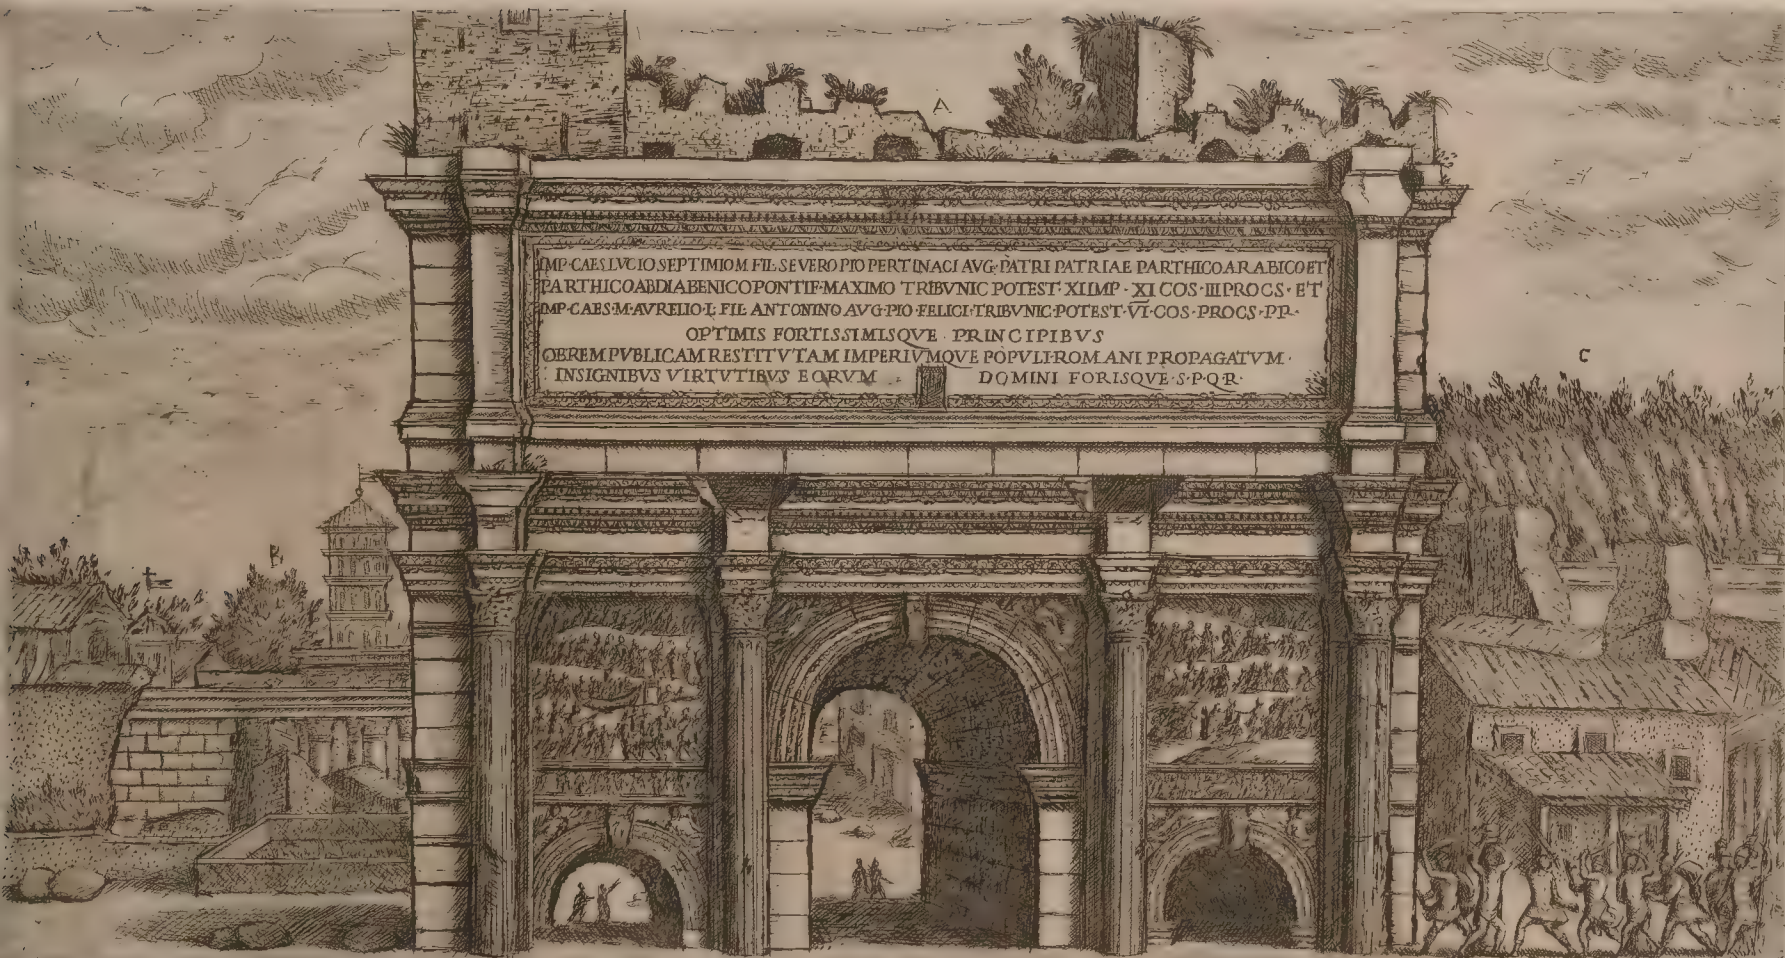 A
IMP·CAES LVCIO SEPTIMIO M FIL SEVERO PIO PERTINACI AVG·PATRI PATRIAE PARTHICO ARABICO ET
PARTHICO ABDIABENICO PONTIF·MAXIMO TRIBVNIC POTEST·XI IMP·XI COS·III PROCS·ET
IMP·CAES·M·AVRELIO·L·FIL·ANTONINO AVG·PIO·FELICI·TRIBVNIC·POTEST·VI·COS·PROCS·PP·
OPTIMIS FORTISSIMISQVE PRINCIPIBVS
OBREMPVBLICAM RESTITVTAM IMPERIVMQVE POPVLI·ROMANI PROPAGATVM·
INSIGNIBVS VIRTVTIBVS EORVM DOMINI FORISQVE·S·P·Q·R·
C
B